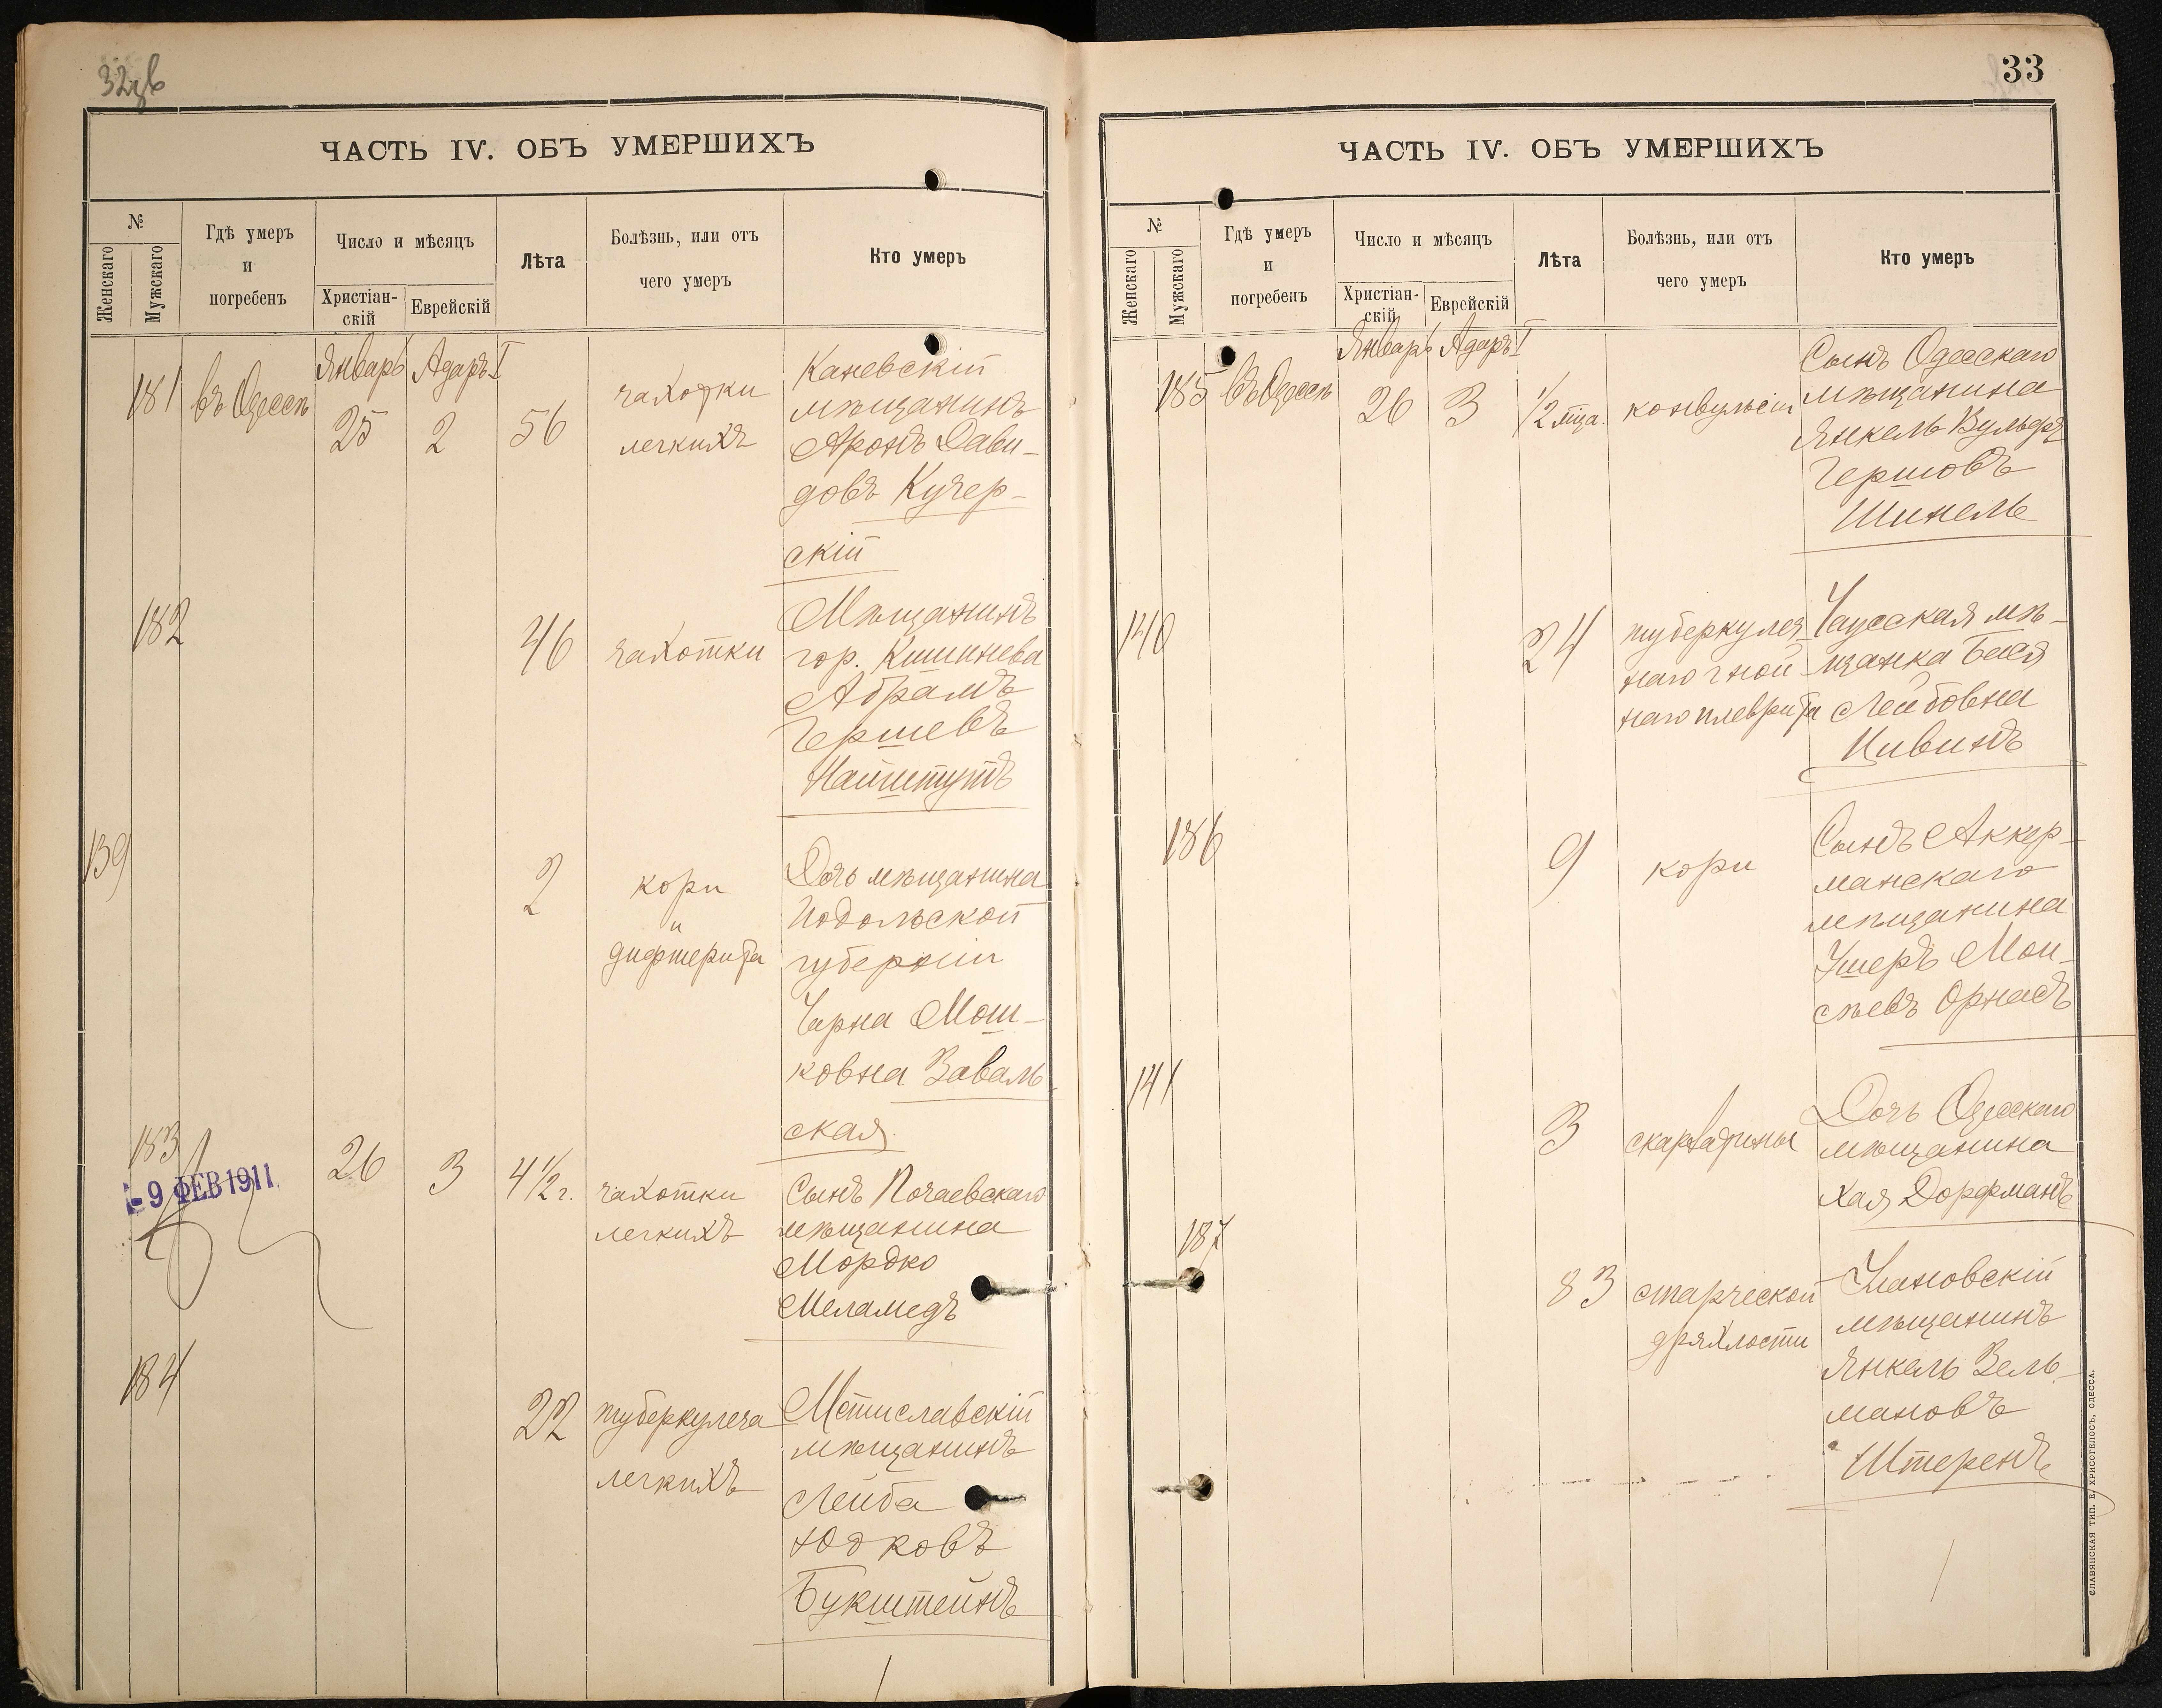 32 об
ЧАСТЬ IV. ОБЪ УМЕРШИХЪ
№
Женскаго
Мужскаго
Гдѣ умеръ
и
погребенъ
Число и мѣсяцъ
Христіан-
скій
Еврейскій
Лѣта
Болѣзнь, или отъ
чего умеръ
Кто умеръ
Январь Адаръ I
181 въ Одессѣ 25 2 56
чахотки
легкихъ
Каневскій
мѣщанинъ
Аронъ Дави-
довъ Кучер-
скій
182 46 чахотки
Мѣщанинъ
гор. Кишинева
Абрамъ
Гершевъ
Найштутъ
139 2
кори
и
дифтерита
Дочь мѣщанина
Подольской
губерніи
Чарна Мош-
ковна Заваль-
ская
183 26 3 4 1/2 г.
- 9 ФЕВ 1911
чахотки
легкихъ
Сынъ Почаевскаго
мѣщанина
Мордко
Меламедъ
184 22
туберкулеза
легкихъ
Мстиславскій
мѣщанинъ
Лейба
Юдковъ
Букштейнъ
33
ЧАСТЬ IV. ОБЪ УМЕРШИХЪ
№
Женскаго
Мужскаго
Гдѣ умеръ
и
погребенъ
Число и мѣсяцъ
Христіан-
скій
Еврейскій
Лѣта
Болѣзнь, или отъ
чего умеръ
Кто умеръ
Январь Адаръ I
185 въ Одессѣ 26 3 1/2 мѣца. конвульсіи
Сынъ Одесскаго
мѣщанина
Янкель Вульфъ
Гершовъ
Шинель
140 24
туберкулез-
наго гной-
наго плеврита
Чаусская мѣ-
щанка Бася
Лейбовна
Цивинъ
186 9 кори
Сынъ Аккер-
манскаго
мѣщанина
Ушеръ Мои-
сѣевъ Орнасъ
141 3 скарлатины
Дочь Одесскаго
мѣщанина
Хая Дорфманъ
187 83
старческой
дряхлости
Улановскій
мѣщанинъ
Янкель Зель-
мановъ
Штеренъ
СЛАВЯНСКАЯ ТИП. Е. ХРИСОГЕЛОСЪ, ОДЕССА.